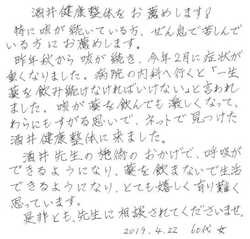 酒井健康整体をお薦めします!
特に咳が続いている方、ぜん息で苦しんで
いる方にお薦めします。
昨年秋から咳が続き、今年2月に症状が
重くなりました。病院の内科へ行くと「一生
薬を飲み続けなければいけない」と言われ
ました。咳が薬を飲んでも激しくなって、
わらにもすがる思いで、ネットで見つけた
酒井健康整体に来ました。
酒井先生の施術のおかげで、呼吸が
できるようになり、薬を飲まないで生活
できるようになり、とても嬉しく有り難く
思っています。
是非とも、先生に相談されてくださいませ。
2019.4.22 60代 女